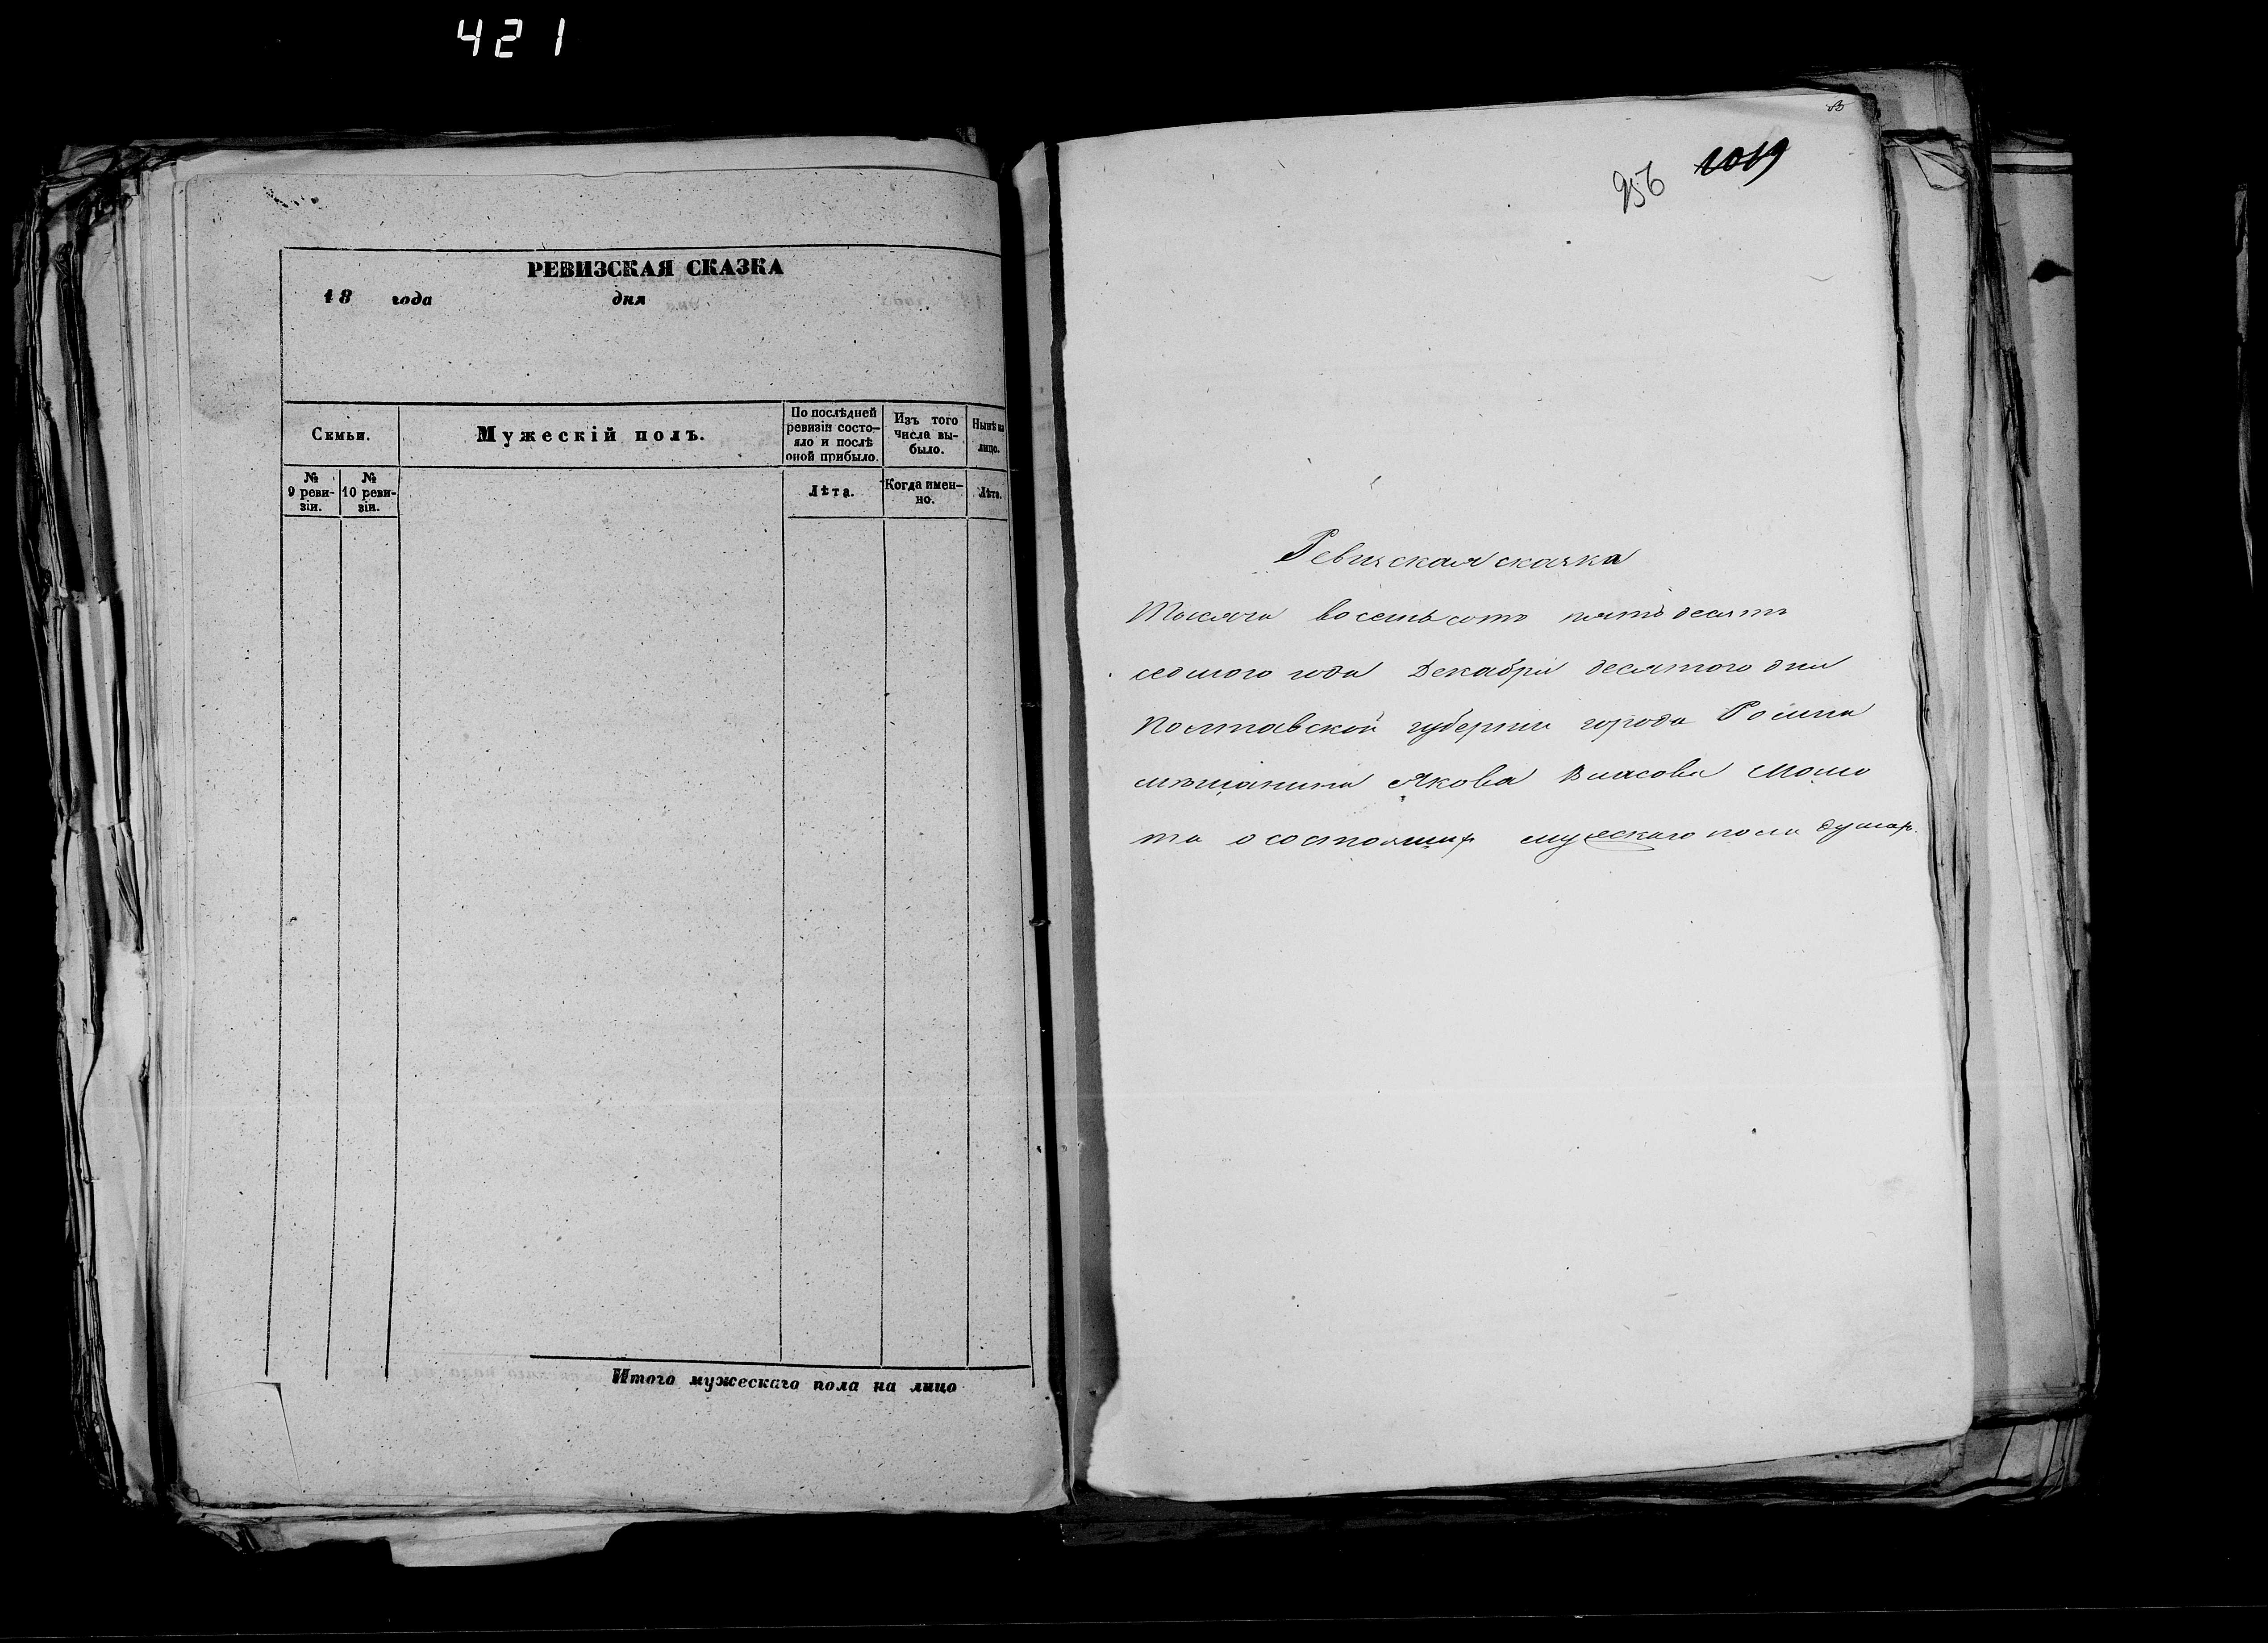 421
РЕВИЗСКАЯ СКАЗКА
18 года дня
Семьи.
Мужескій полъ.
По послѣдней ревизіи состо-
яло и послѣ
оной прибыло.
Изъ того
числа вы-
было.
Нынѣ на
лицо.
№
9 реви-
зіи.
№
10 реви-
зіи.
Лѣта.
Когда имен-
но.
Лѣта.
Итого мужескаго пола на лицо
956 1019
Ревизская сказка
Тысяча восемьсотъ пятьдесятъ
седмого года Декабря десятого дня
Полтавской губерніи города Ромна
мѣщанина Якова Власова Момо
та о состоящихъ мужескаго пола душах.